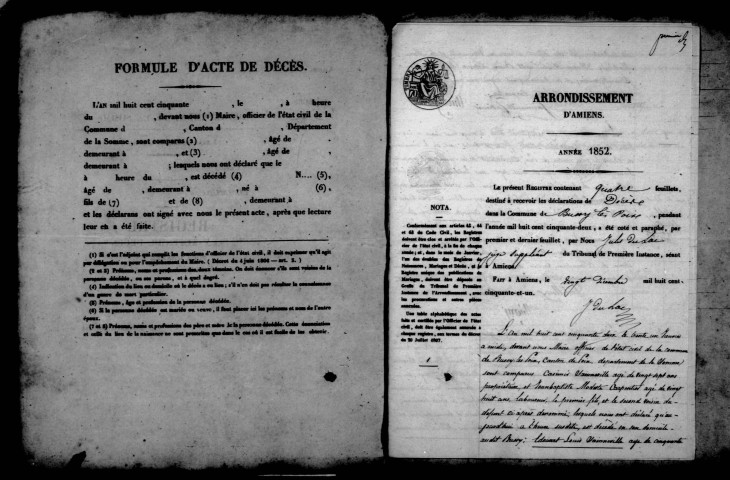 FORMULE D'ACTE DE DÉCÈS.
L'AN mil huit cent cinquante , le , à heure
du , devant nous (1) Maire, officier de l'état civil de la
Commune d , Canton d , Département
de la Somme, sont comparus (2) , âgé de
demeurant à , et (3) , âgé de ,
demeurant à ; lesquels nous ont déclaré que le
à heure du , est décédé (4) N.... (5),
âgé de , demeurant à , né à (6),
fils de (7) et de (8) , demeurant à
et les déclarans ont signé avec nous le présent acte, après que lecture
leur en a été faite.
(1) Si c'est l'adjoint qui remplit les fonctions d'officier de l'état civil, il doit exprimer qu'il agit
par délégation ou par l'empêchement du Maire. (Décret du 4 juin 1806 — art. 5.)
(2 et 3) Prénoms, noms et professions des deux témoins. On doit énoncer s'ils sont voisins de la
personne décédée, ou ses parens, et à quel degré.
(4) Indication du lieu ou domicile où le décès a eu lieu; s'il n'en doit pas résulter la connaissance
d'un genre de mort particulier.
(5) Prénoms, âge et profession de la personne décédée.
(6) Si la personne décédée est mariée ou veuve, il faut placer ici les prénoms et nom de l'autre
époux.
(7 et 8) Prénoms, noms et professions des père et mère de la personne décédée. Cette énonciation
et celle du lieu de la naissance ne sont prescrites que dans le cas où il est facile de les obtenir.
premier
ARRONDISSEMENT
D'AMIENS.
ANNÉE 1852.
LE présent REGISTRE contenant quatre feuillets,
destiné à recevoir les déclarations de Décès
dans la Commune de Bussy les Poix, pendant
l'année mil huit cent cinquante-deux, a été coté et paraphé, par
premier et dernier feuillet, par Nous Jules Du Lac
juge suppléant du Tribunal de Première Instance, séant
à Amiens.
FAIT à Amiens, le vingt Décembre mil huit cent
cinquante-et-un.
J Du Lac
NOTA.
Conformément aux articles 43, 44
et 63 du Code Civil, les Registres
doivent être clos et arrêtés par l'Offi-
cier de l'état civil, à la fin de chaque
année; et, dans le mois de Janvier,
l'un des doubles des Registres de
Naissances, Mariages et Décès, et le
Registre unique des publications de
Mariages, doivent être déposés au
Greffe du Tribunal de Première
Instance de l'Arrondissement, avec
les procurations et autres pièces
annexées.
Une table alphabétique des actes
faite et certifiée par l'Officier de l'état
civil, doit être également annexée à
chaque registre, aux termes du décret
du 20 Juillet 1807.
1
L'an mil huit cent cinquante deux le trente un
à midi, devant nous Maire officier de l'état civil de la commune
de Bussy les Poix, Canton de Poix, département de la Somme
sont comparus Casimir âgé de vingt sept ans
propriétaire, et Jeanbaptiste Modeste Carpentier âgé de vingt
huit ans, laboureur, le premier fils, et le second voisin du
défunt ci après dénommé, lesquels nous ont déclaré qu'au-
jourd'hui à heure susdite, est décédé en son domicile
audit Bussy, Edouard Louis âgé de cinquante